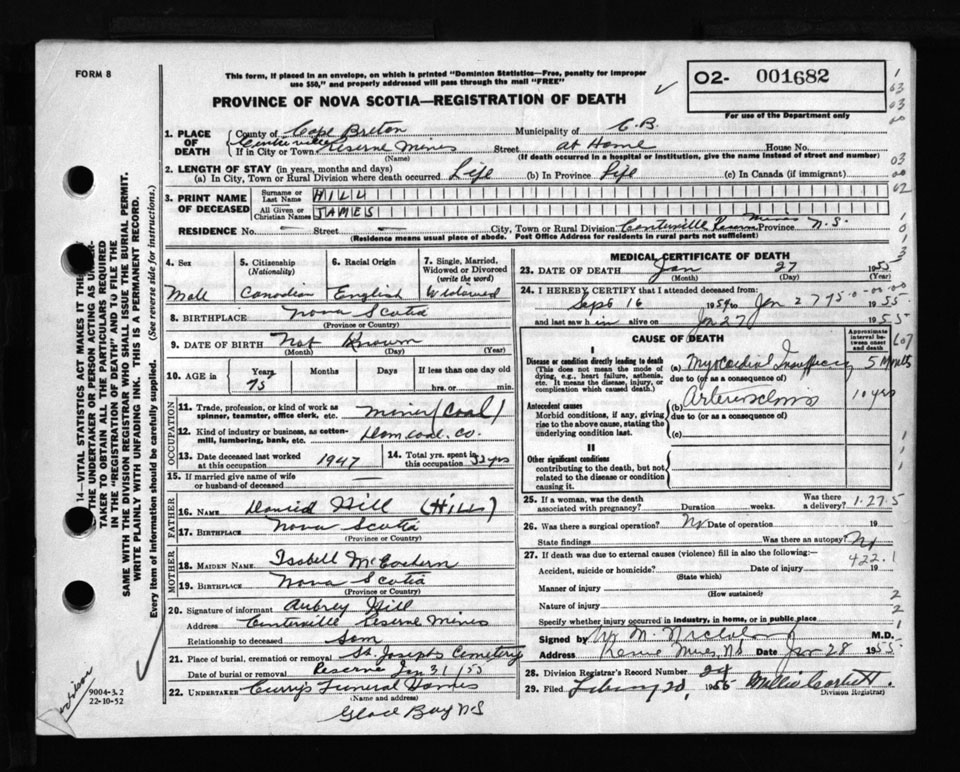 FORM 8
This form, if placed in an envelope, on which is printed "Dominion Statistics—Free, penalty for improper
use $50," and properly addressed will pass through the mail "FREE"
O2- 001682
For use of the Department only
PROVINCE OF NOVA SCOTIA—REGISTRATION OF DEATH
1. PLACE OF DEATH
County of Cape Breton Municipality of C.B.
Centreville
If in City or Town Reserve Mines Street at Home House No.
(Name) (If death occurred in a hospital or institution, give the name instead of street and number)
2. LENGTH OF STAY (in years, months and days)
(a) In City, Town or Rural Division where death occurred Life (b) In Province Life (c) In Canada (if immigrant)
3. PRINT NAME OF DECEASED
Surname or Last Name HILL
All Given or Christian Names JAMES
RESIDENCE No. — Street — City, Town or Rural Division Centerville Reserve Mines Province N.S.
(Residence means usual place of abode. Post Office Address for residents in rural parts not sufficient)
4. Sex Male
5. Citizenship (Nationality) Canadian
6. Racial Origin English
7. Single, Married, Widowed or Divorced (write the word) Widowed
8. BIRTHPLACE Nova Scotia
(Province or Country)
9. DATE OF BIRTH Not Known
(Month) (Day) (Year)
10. AGE in Years 75 Months Days If less than one day hrs. or min.
OCCUPATION
11. Trade, profession, or kind of work as spinner, teamster, office clerk, etc. miner (Coal)
12. Kind of industry or business, as cotton-mill, lumbering, bank, etc. Dom Coal. Co.
13. Date deceased last worked at this occupation 1947
14. Total yrs. spent in this occupation yrs
15. If married give name of wife or husband of deceased —
FATHER
16. NAME Hill (HILL)
17. BIRTHPLACE Nova Scotia
(Province or Country)
MOTHER
18. MAIDEN NAME Isabell McEachern
19. BIRTHPLACE Nova Scotia
(Province or Country)
20. Signature of informant Aubrey Hill
Address Centerville Reserve Mines
Relationship to deceased Son
21. Place of burial, cremation or removal St. Josephs Cemetery
Date of burial or removal Reserve Jan 31/55
22. UNDERTAKER Currys Funeral Homes
(Name and address)
Glace Bay N.S
MEDICAL CERTIFICATE OF DEATH
23. DATE OF DEATH Jan 27 1955
(Month) (Day) (Year)
24. I HEREBY CERTIFY that I attended deceased from:
Sept 16 1954 to Jan 27 1955
and last saw h im alive on Jan 27 1955
CAUSE OF DEATH
Approximate interval between onset and death
I
Disease or condition directly leading to death
(This does not mean the mode of dying, e.g., heart failure, asthenia, etc. It means the disease, injury, or complication which caused death.)
(a) Myocardial Insufficiency 5 Months
due to (or as a consequence of)
Antecedent causes
Morbid conditions, if any, giving rise to the above cause, stating the underlying condition last.
(b) Arteriosclerosis 10 yrs
due to (or as a consequence of)
(c)
II
Other significant conditions
contributing to the death, but not related to the disease or condition causing it.
25. If a woman, was the death associated with pregnancy? Duration weeks. Was there a delivery?
1.27.5
26. Was there a surgical operation? No Date of operation 19
State findings Was there an autopsy? No
27. If death was due to external causes (violence) fill in also the following:—
422.1
Accident, suicide or homicide? Date of injury 19
(State which)
Manner of injury
(How sustained)
Nature of injury
Specify whether injury occurred in industry, in home, or in public place
Signed by M.D.
Address Reserve Mines, NS Date Jan 28 1955
28. Division Registrar's Record Number 24
29. Filed February 20, 1955 Millie Corbett
Division Registrar.
14—VITAL STATISTICS ACT MAKES IT THE
THE UNDERTAKER OR PERSON ACTING AS UNDER-
TAKER TO OBTAIN ALL THE PARTICULARS REQUIRED
IN THE "REGISTRATION OF DEATH" AND TO FILE THE
SAME WITH THE DIVISION REGISTRAR WHO SHALL ISSUE THE BURIAL PERMIT.
WRITE PLAINLY WITH UNFADING INK. THIS IS A PERMANENT RECORD.
Every item of information should be carefully supplied. (See reverse side for instructions.)
9004-3.2
22-10-52